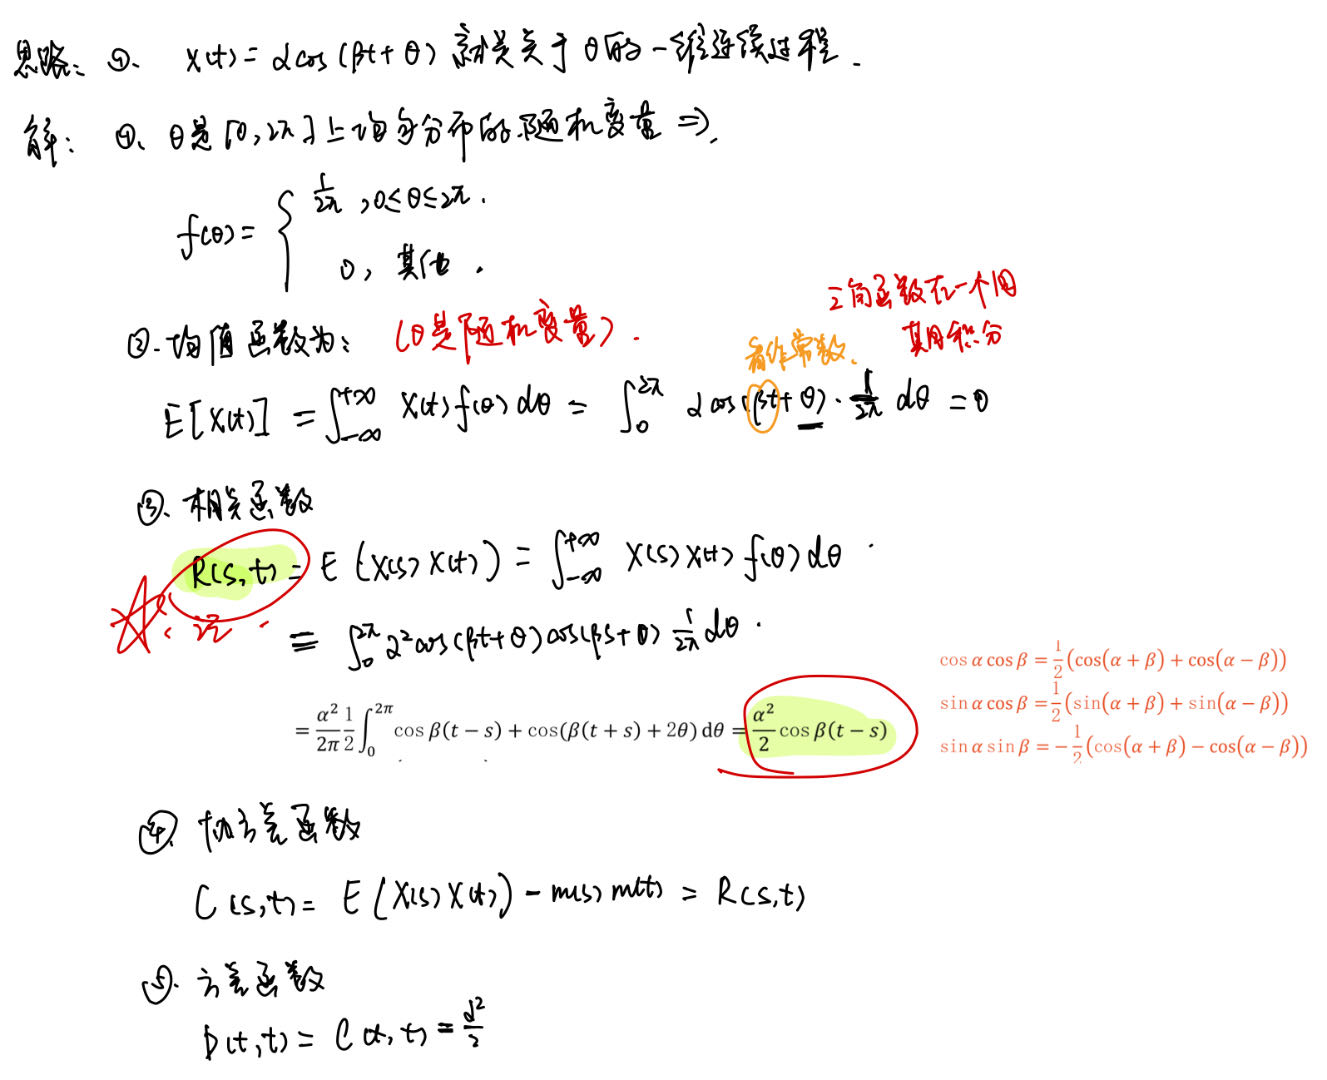 思路: ①. X(t) = αcos(βt+θ) 就是关于θ的一维连续过程.
解: ①. θ是[0,2π]上均匀分布的随机变量 ⇒.
f(θ) = { 1/2π, 0≤θ≤2π.
0, 其他.
②. 均值函数为: (θ是随机变量).
三角函数在一个周期积分
看作常数.
E[X(t)] = ∫_{-∞}^{+∞} X(t)f(θ)dθ = ∫_0^{2π} αcos(βt+θ)·1/2π dθ = 0
③. 相关函数
R(s,t) = E(X(s)X(t)) = ∫_{-∞}^{+∞} X(s)X(t)f(θ)dθ.
记.
= ∫_0^{2π} α²cos(βt+θ)cos(βs+θ) 1/2π dθ.
= α²/2π 1/2 ∫_0^{2π} cos β(t − s) + cos(β(t + s) + 2θ) dθ = α²/2 cos β(t − s)
cos α cos β = 1/2 (cos(α + β) + cos(α − β))
sin α cos β = 1/2 (sin(α + β) + sin(α − β))
sin α sin β = −1/2 (cos(α + β) − cos(α − β))
④. 协方差函数
C(s,t) = E(X(s)X(t)) − m(s)m(t) = R(s,t)
⑤. 方差函数
D(t,t) = C(t,t) = α²/2